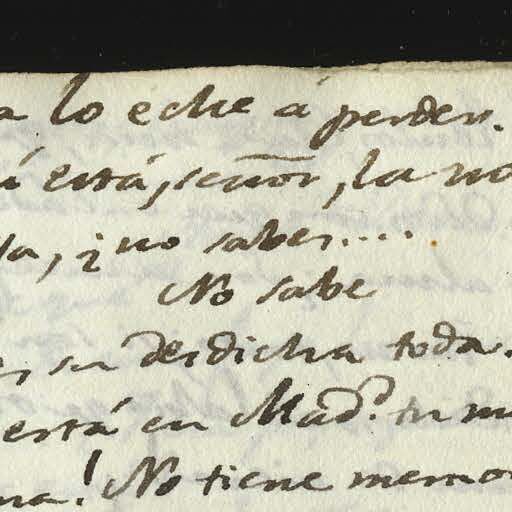 a lo eche á perder.
á está, señor, la no
sa, ¿no sabes....
No sabe
es su desdicha toda.
está en Mad.d tu m
na! No tiene memor